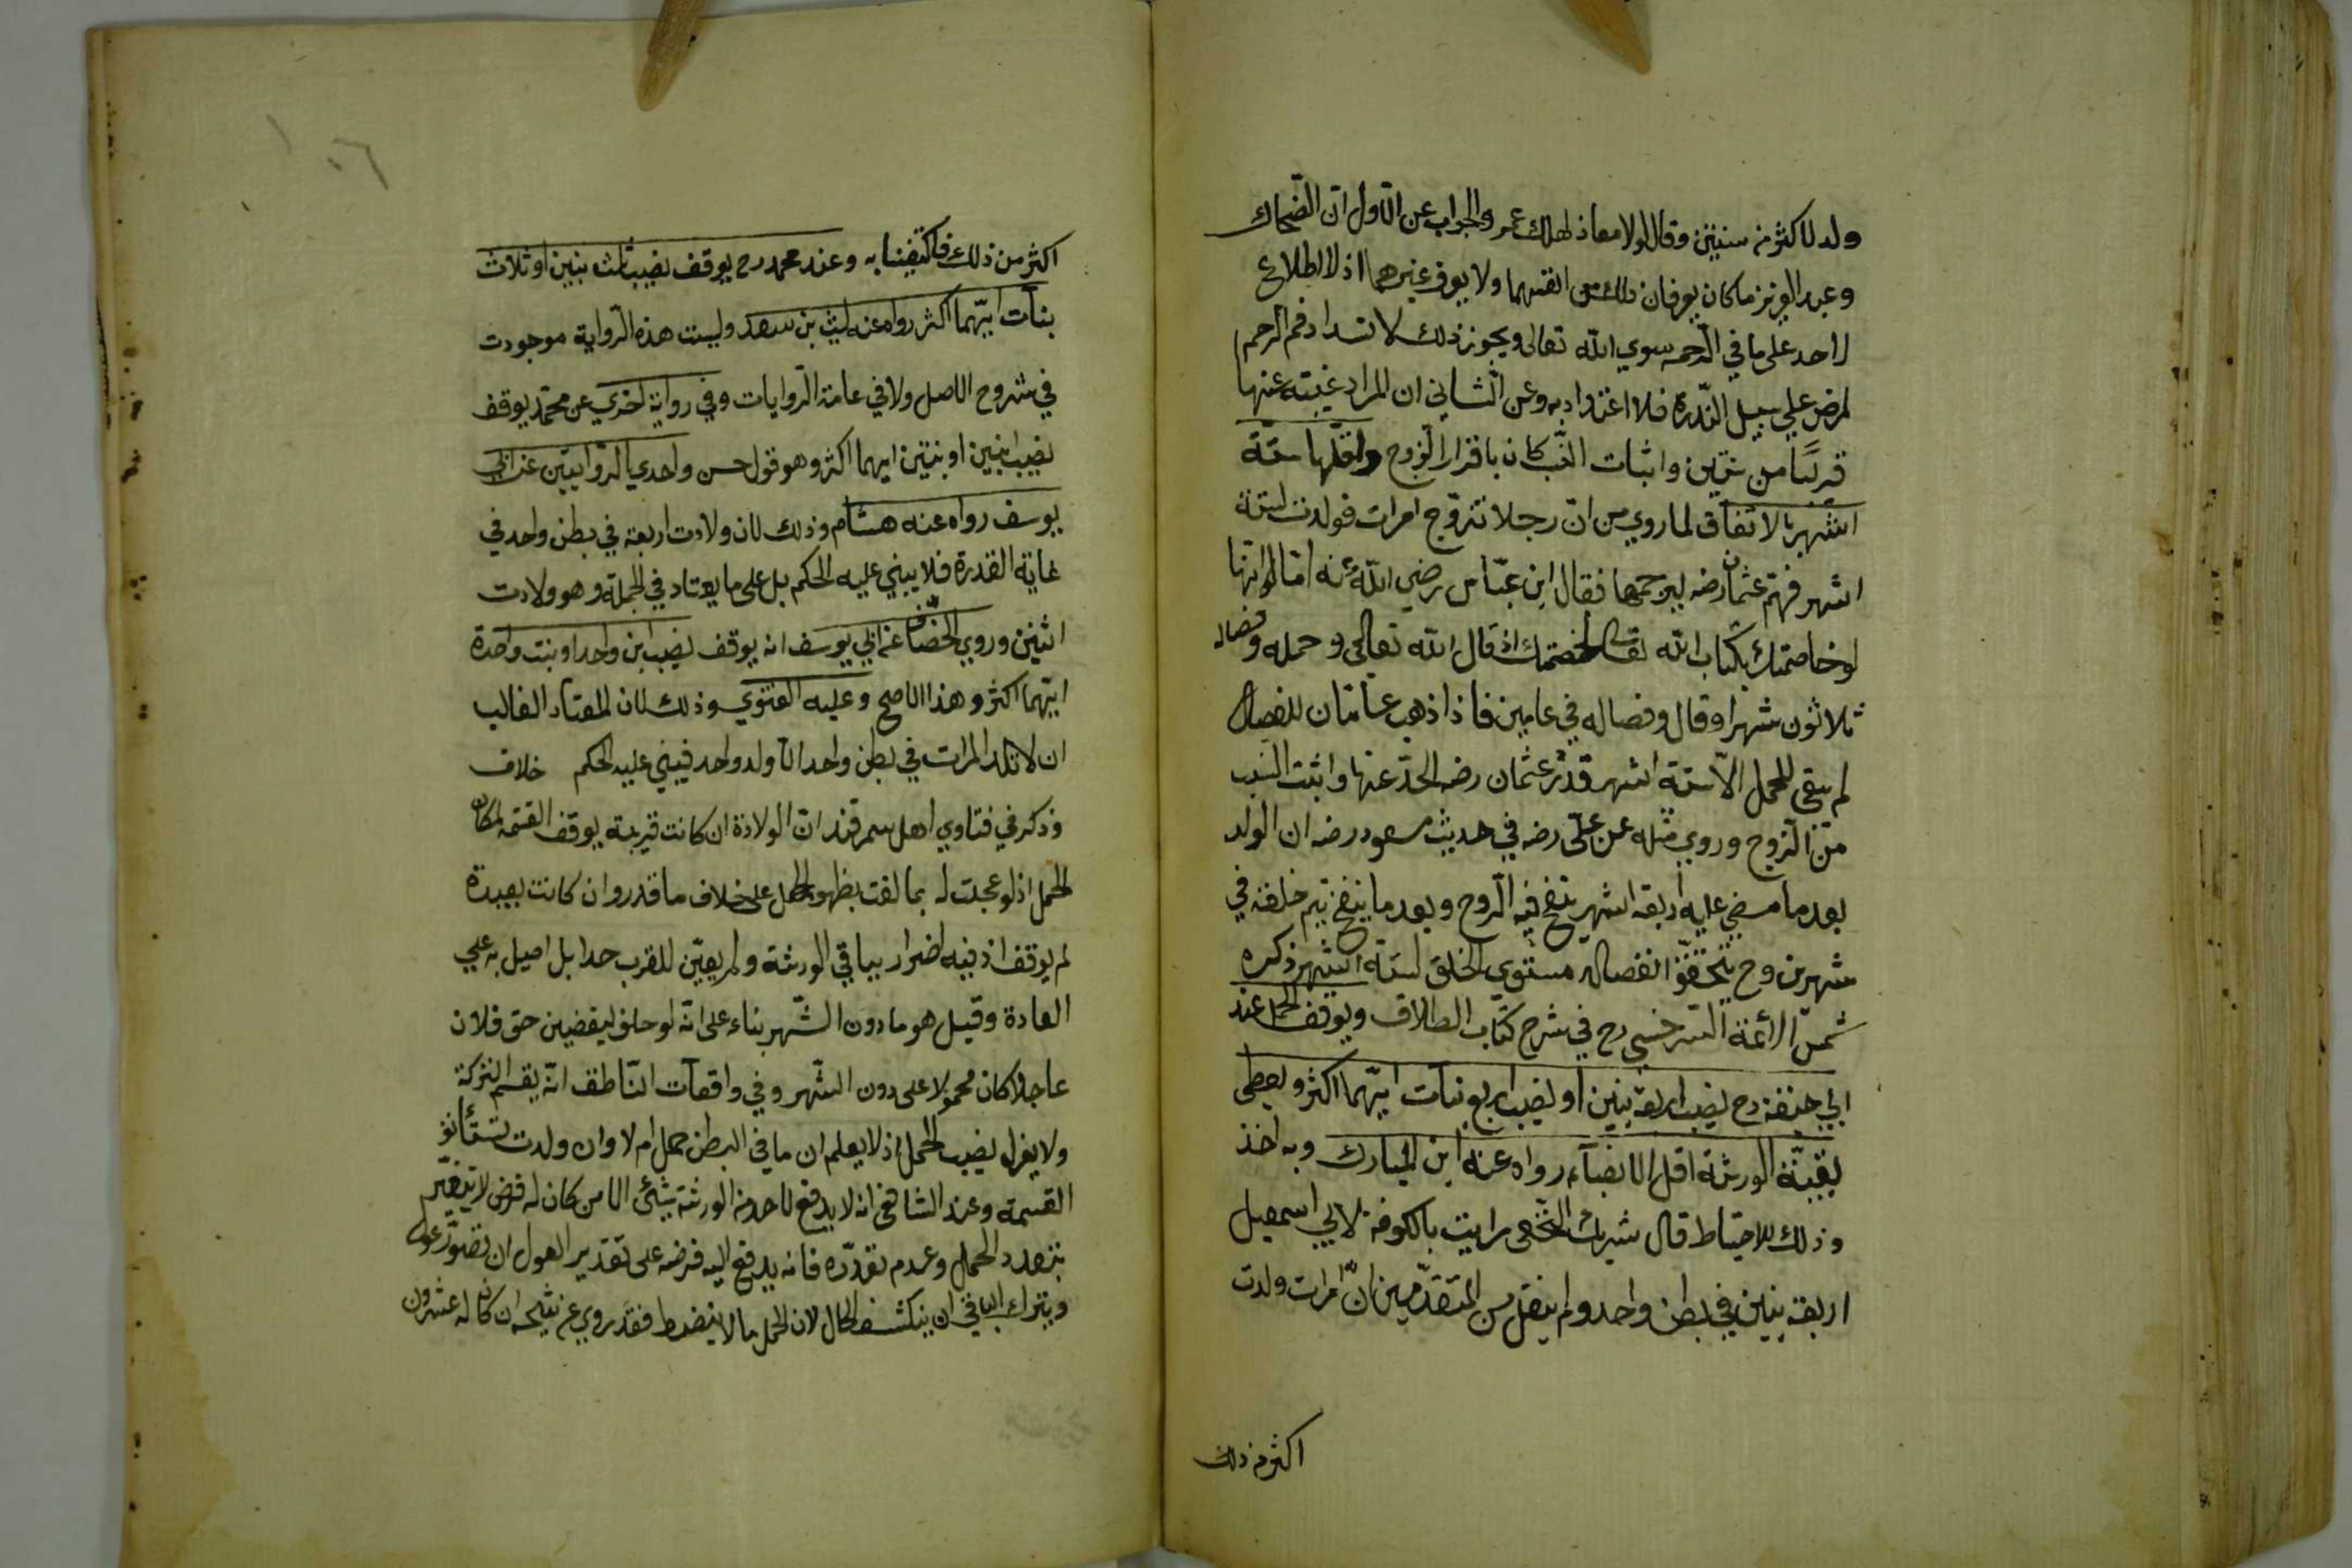 ولد لاكثر من سنتين وقال لولا معاذ لهلك عمر والجواب عن الاول ان الضحاك
وعبد العزيز ما كان يعرفان ذلك من انفسهما ولا يعرف غيرهما اذ لا اطلاع
لاحد على ما في الرحم سوي الله تعالى ويجوز ذلك لانسداد فم الرحم
لمرض علي سبيل الندرة فلا اعتداد به وعن الثاني ان المراد غيبته عنها
قريبا من سنتين واثبات النسب كان باقرار الزوج واقلها ستة
اشهر بالاتفاق لما روي من ان رجلا تزوج امرات فولدت لستة
اشهر فهم عثمان رضه ليرجمها فقال ابن عباس رضي الله عنه اما لو انها
لو خاصمتك بكتاب الله تعالى لخصمتك اذ قال الله تعالى وحمله وفصاله
ثلاثون شهرا وقال وفصاله في عامين فاذا ذهب عامان للفصال
لم يبقى للحمل الا ستة اشهر فدرء عثمان رضه الحد عنها واثبت النسب
من الزوج وروي مثله عن علي رضه في حديث مسعود رضه ان الولد
بعد ما مضي عليه اربعة اشهر ينفخ فيه الروح وبعد ما ينفخ يتم خلقه في
شهرين وح يتحقق انفصاله مستوي الخلق لستة اشهر ذكره
شمس الائمة السرخسي رح في شرح كتاب الطلاق ويوقف للحمل عند
ابي حنيفة رح نصيب اربعة بنين او نصيب اربع بنات ايهما اكثر ويعطى
بقية الورثة اقل الانصباء رواه عنه ابن المبارك وبه اخذ
وذلك للاحتياط قال شريك النخعى رايت بالكوفة لابي اسمعيل
اربعة بنين في بطن واحد ولم ينقل من المتقدمين ان امرات ولدت
اكثر من ذلك
اكثر من ذلك فاكتفينا به وعند محمد رح يوقف نصيب ثلث بنين او ثلاث
بنات ايهما اكثر رواه عنه ليث بن سعد وليست هذه الرواية موجودت
في شروح الاصل ولا في عامة الروايات وفي رواية اخري عن محمد يوقف
نصيب ابنين او بنتين ايهما اكثر وهو قول حسن واحدي الروايتين عن ابي
يوسف رواه عنه هشام وذلك لان ولادت اربعة في بطن واحد في
غاية القدرة فلا يبني عليه الحكم بل على ما يعتاد في الجملة وهو ولادت
اثنين وروي الخصاف عن ابي يوسف انه يوقف نصيب ابن واحد او بنت واحدة
ايهما اكثر وهذا الاصح وعليه الفتوي وذلك لان المعتاد الغالب
ان لا تلد المرات في بطن واحد الا ولد واحد فيبني عليه الحكم خلاف
وذكر في فتاوي اهل سمرقند ان الولادة ان كانت قريبة يوقف القسمة لمكان
الحمل اذ لو عجلت له بما لغت بظهور الحمل على خلاف ما قدر وان كانت بعيدة
لم يوقف اذ فيه اضرار بباقي الورثة ولم يعين للقرب حدا بل احيل به علي
العادة وقيل هو ما دون الشهر بناء على انه لو حلف ليقضين حق فلان
عاجلا كان محمولا على دون الشهر وفي واقعات الناطف انه يقسم التركة
ولا يعزل نصيب الحمل اذ لا يعلم ان ما في البطن حمل ام لا وان ولدت تستأنف
القسمة وعند الشافعي انه لا يدفع لاحد من الورثة شئ الا من كان له فرض لا يتغير
بتعدد الحمل وعدم تعدده فانه يدفع اليه فرضه على تقدير العول ان تصور عول
ويترك الباقي ان ينكشف الحال لان الحمل مما لا ينضبط فقد روي عن شيخه ان كان له عشرون